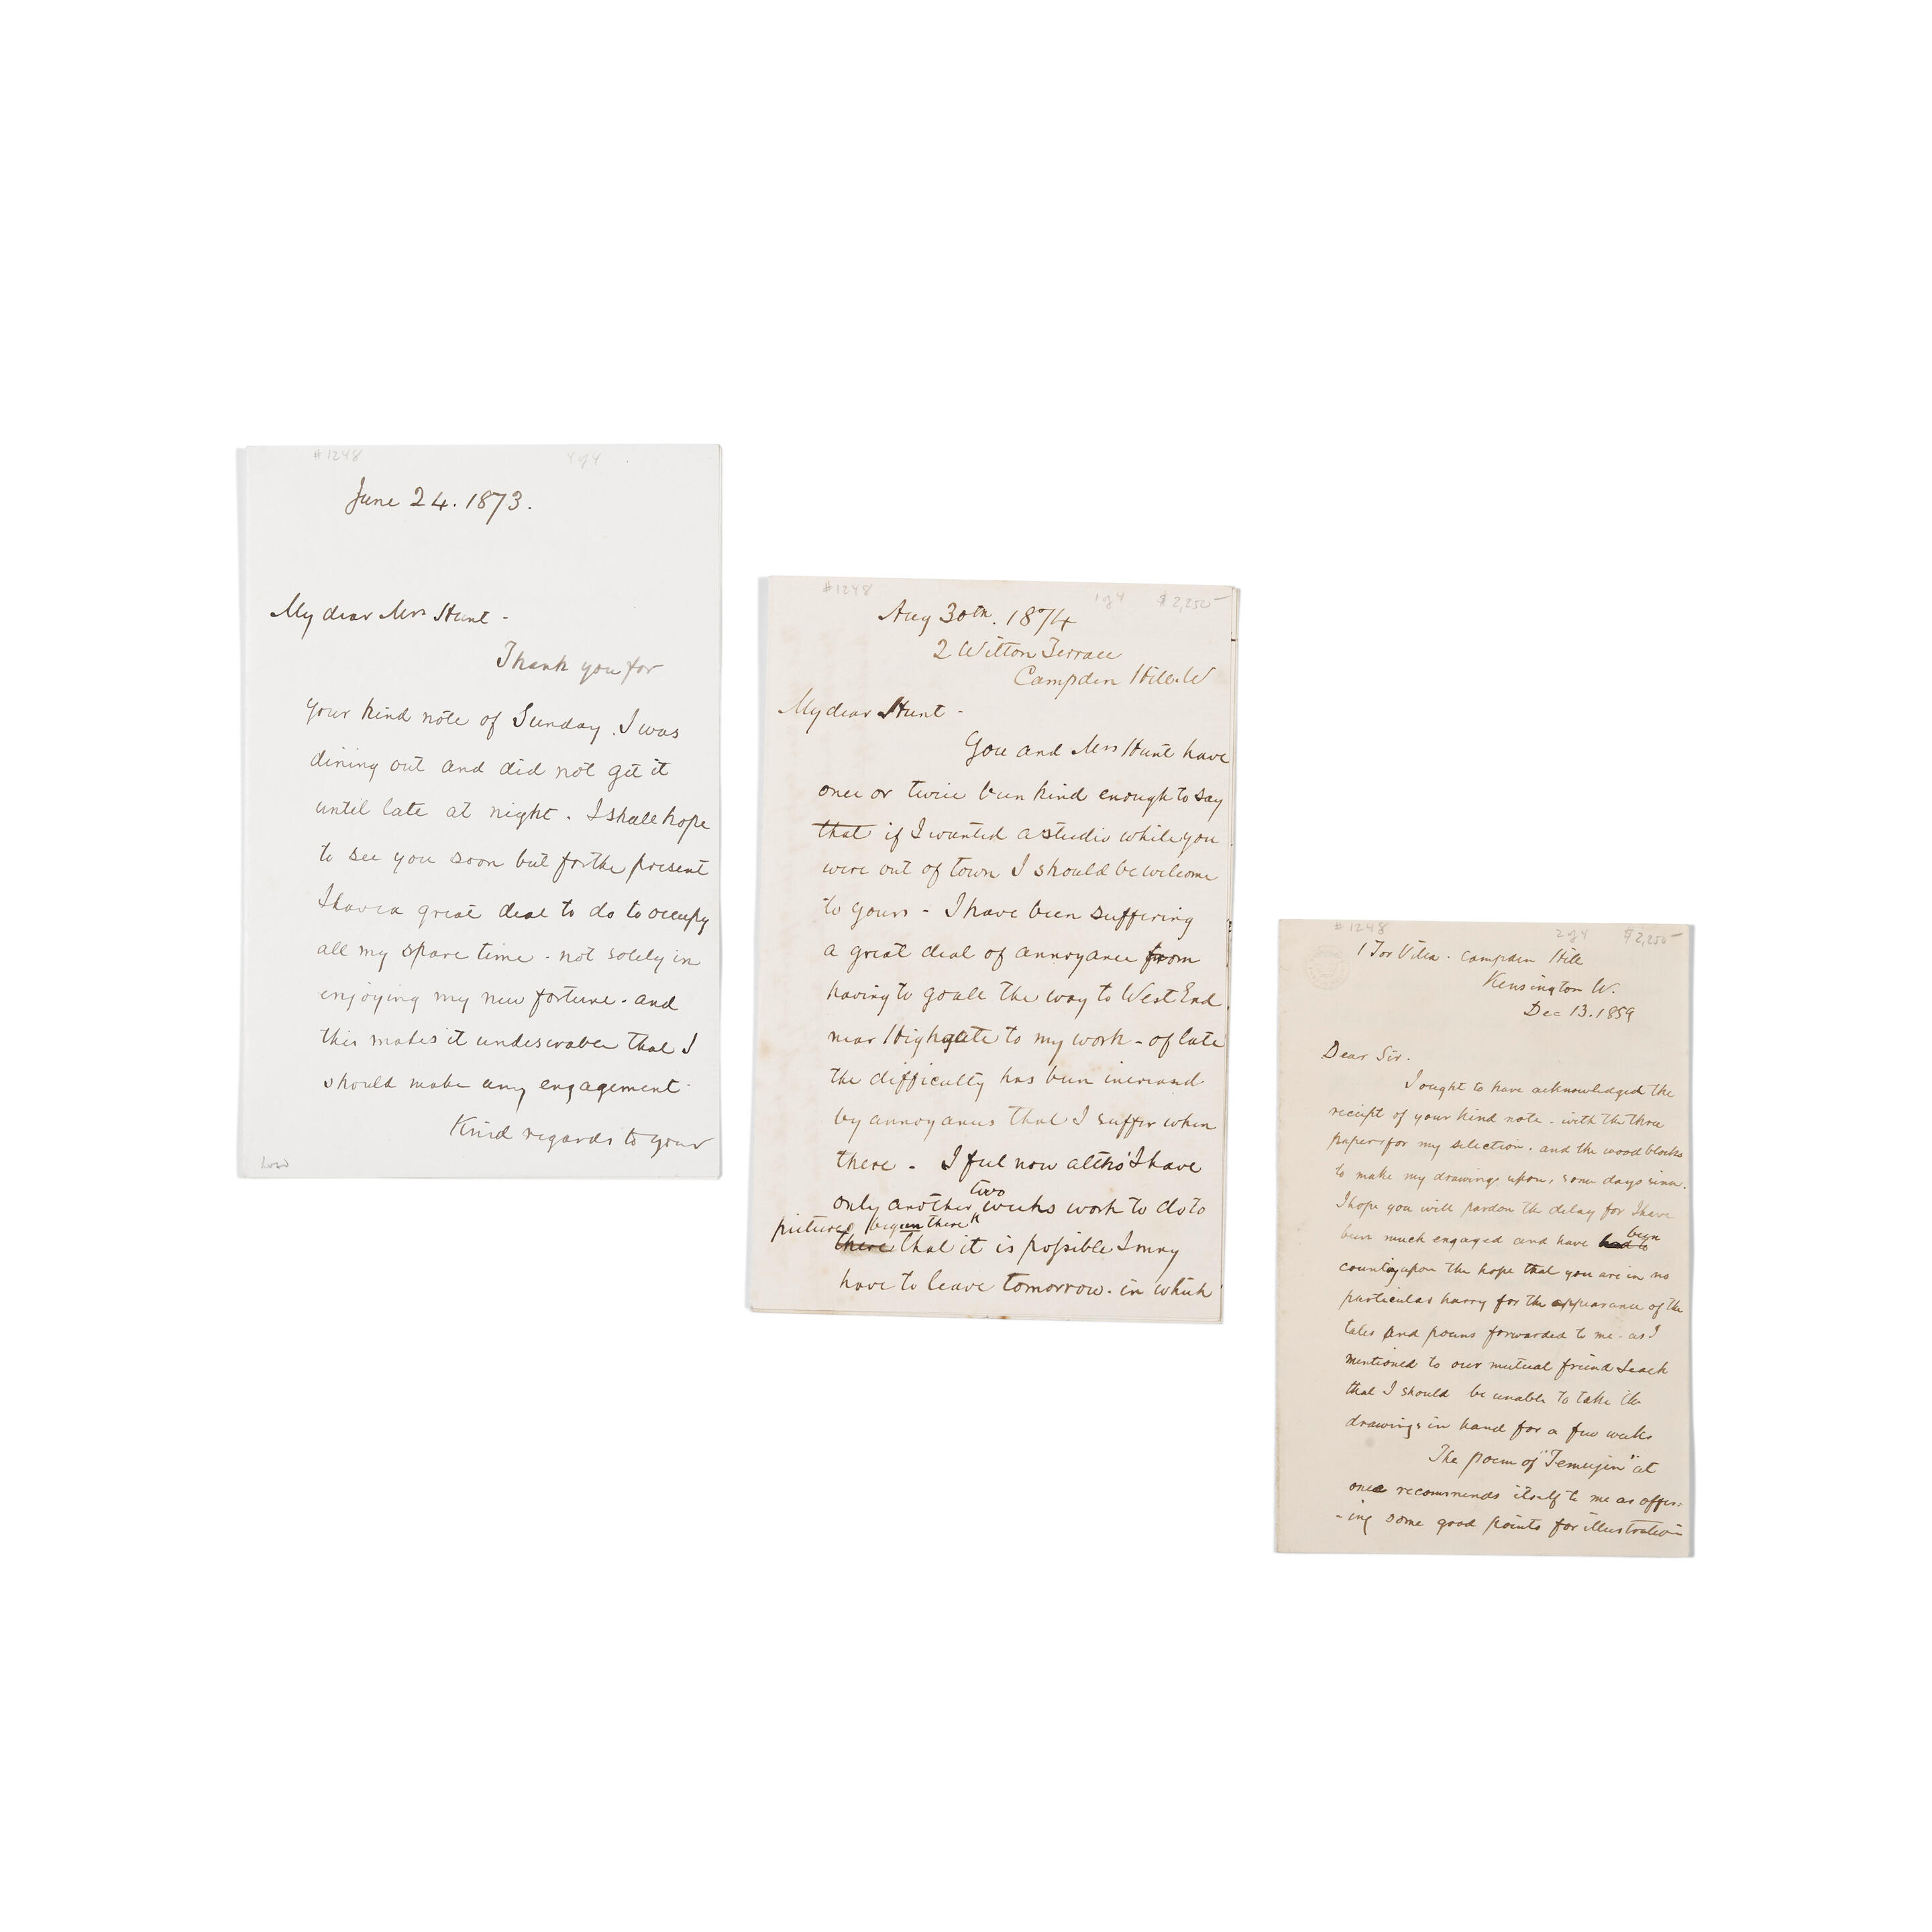 #1248 4 of 4
June 24. 1873.
My dear Mrs Hunt -
Thank you for
your kind note of Sunday. I was
dining out and did not get it
until late at night. I shall hope
to see you soon but for the present
I have a great deal to do to occupy
all my spare time - not solely in
enjoying my new fortune - and
this makes it undesirable that I
should make any engagement -
Kind regards to your
#1248 1 of 4 $2,250-
Aug 30th. 1874
2 Wilton Terrace
Campden Hill. W
My dear Hunt -
You and Mrs Hunt have
once or twice been kind enough to say
that if I wanted a studio while you
were out of town I should be welcome
to yours - I have been suffering
a great deal of annoyance from
having to go all the way to West End
near Highgate to my work - of late
the difficulty has been increased
by annoyances that I suffer when
there - I feel now altho' I have
two
only another weeks work to do to
pictures begun there
there that it is possible I may
have to leave tomorrow - in which
#1248 2 of 4 $2,250-
1 Tor Villa - Campden Hill
Kensington W.
Dec 13. 1859
Dear Sir.
I ought to have acknowledged the
receipt of your kind note - with the three
papers for my selection. and the wood blocks
to make my drawings upon, some days since.
I hope you will pardon the delay for I have
been
been much engaged and have had to
counting upon the hope that you are in no
particular hurry for the appearance of the
tales and poems forwarded to me - as I
mentioned to our mutual friend Leech
that I should be unable to take the
drawings in hand for a few weeks
The poem of "Temujin" at
once recommends itself to me as offer-
-ing some good points for illustration